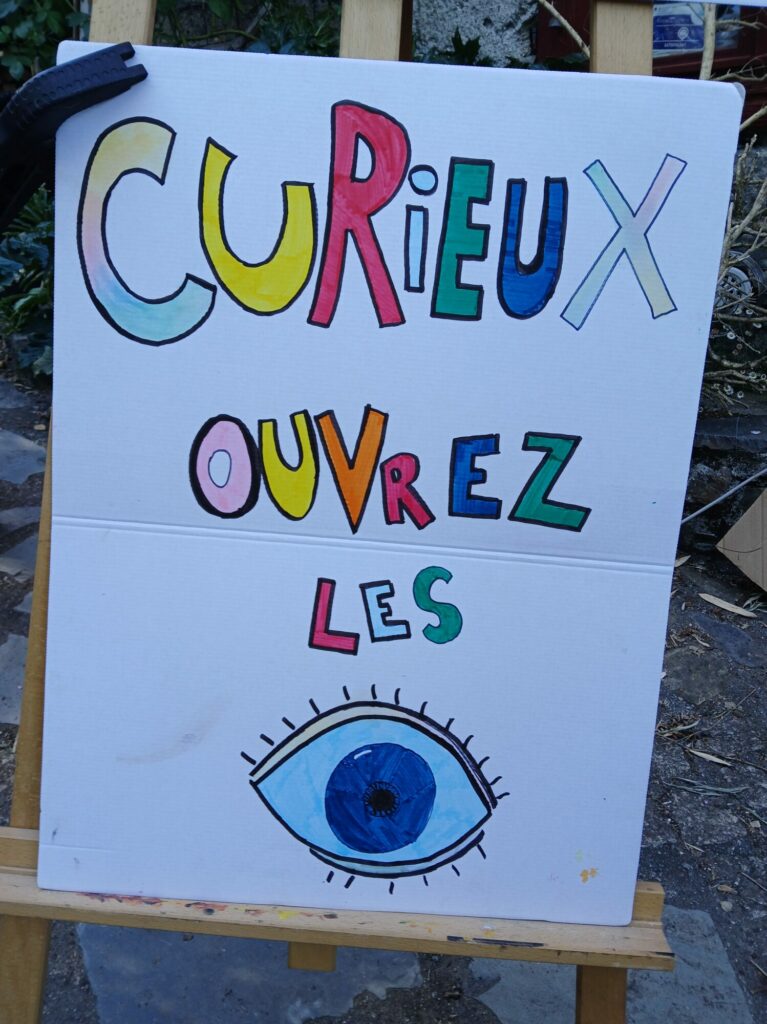 CURiEUX
OUVREZ
LES